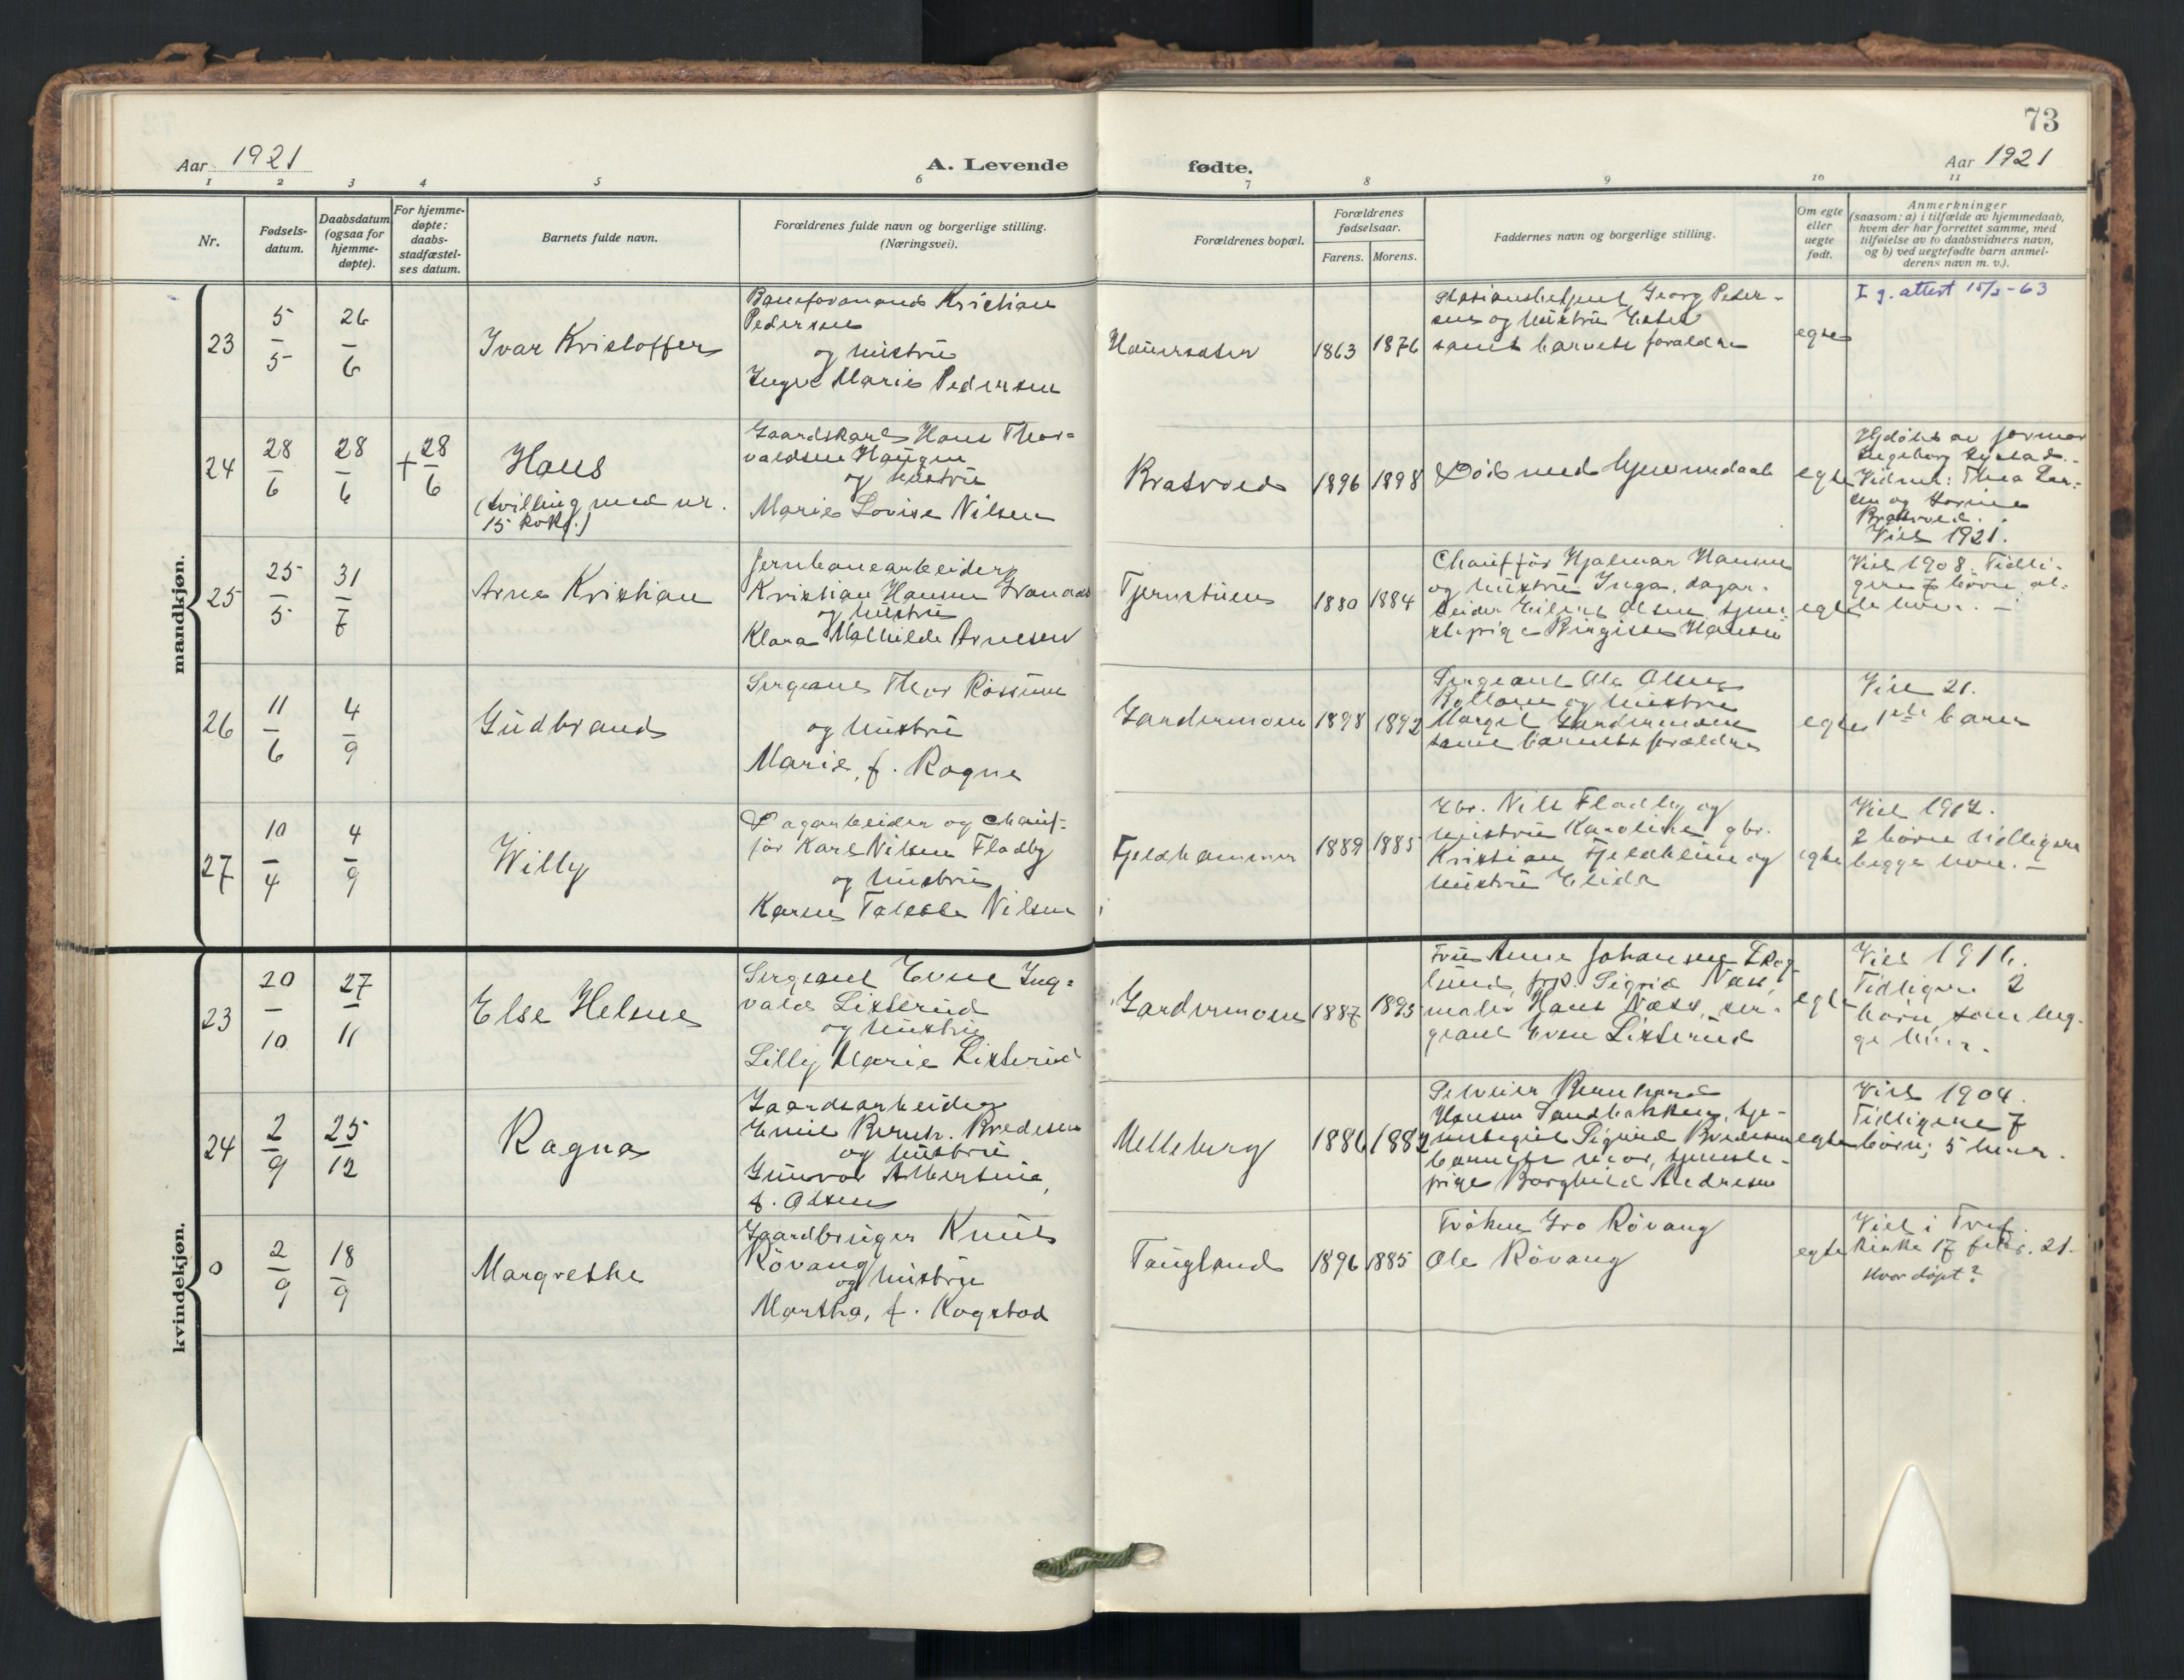 73
Aar 1921
A. Levende
fødte.
Aar 1921
1 2 3 4 5 6 7 8 9 10 11
Nr.
Fødsels-
datum.
Daabsdatum
(ogsaa for
hjemme-
døpte).
For hjemme-
døpte:
daabs-
stadfæstel-
ses datum.
Barnets fulde navn.
Forældrenes fulde navn og borgerlige stilling.
(Næringsvei).
Forældrenes bopæl.
Forældrenes
fødselsaar.
Farens. Morens.
Faddernes navn og borgerlige stilling.
Om egte
eller
uegte
født.
Anmerkninger
(saasom: a) i tilfælde av hjemmedaab,
hvem der har forrettet samme, med
tilføielse av to daabsvidners navn,
og b) ved uegtefødte barn anmel-
derens navn m. v.).
mandkjøn.
23
5/5
26/6
Ivar Kristoffer
Baneformand Kristian
Pedersen
og hustru
Inger Marie Pedersen
1863 1876
Georg Peder-
sen og hustru Ester
samt barnets foraldre
egte
I g. attest 15/2-63
24
28/6
28/6
+ 28/6
Hans
(tvilling med nr.
15 kvkj.)
Gaardskarl Hans Thor=
valdsen Haugen
og hustru
Marie Lovise Nilsen
Bratvold
1896 1898
Død med hjemmedaab
egte
Hjdøbt av jormor
Ingeborg
Vidner: Thea Lar-
sen og
Viet 1921.
25
25/5
31/7
Arne Kristian
Jernbanearbeider
Kristian Hansen
og hustru
Klara Mathilde Arnesen
Tjernstuen
1880 1884
Chauffør Hjalmar Hansen
og hustru Inga, dagar-
beider Olsen, tjene-
stepige Birgitte Hansen
egte
Viet 1908. Tidli-
gere 7 børn, al-
le lever. —
26
11/6
4/9
Gudbrand
Sergeant Thor Rossum
og hustru
Marie, f. Rogne
Gardermoen
1898 1892
Sergeant Ole Olsen
og hustru
Margit Gardermoen
samt barnets forældre
egte
Viet 21.
1ste barn
27
10/4
4/9
Willy
Dagarbeider og chauf-
før Karl Nilsen Fladby
og hustru
Karen Nilsen
Fjeldhammer
1889 1885
Gbr. Nils Fladby og
hustru Karoline, gbr.
Kristian Fjeldheim og
hustru Elida
egte
Viet 1917.
2 børn tidligere
begge lever. —
kvindekjøn.
23
20/10
27/11
Else Helene
Sergeant Even Ing=
vald Lisserud
og hustru
Lilly Marie Lisserud
Gardermoen
1887 1895
Fru Anne Johansen
Sigrid Næss,
maler Hans Næss, ser-
geant Even Lisserud
egte
Viet 1916.
Tidligere 2
børn, som beg-
ge lever.
24
2/9
25/12
Ragna
Gaardsarbeider
Emil Bernh. Bredesen
og hustru
Gunvor Albertine,
f. Olsen
Melleberg
1886 1882
Bernhard
Hansen Sandbakken, tje-
Sigurd Bredesen
barnets mor, tjeneste-
pige Borghild Andresen
egte
Viet 1904.
Tidligere 7
børn; 5 lever.
0
2/9
18/9
Margrethe
Gaardbruger Knut
Røvang
og hustru
Martha, f. Kogstad
Taugland
1896 1885
Frøken Gro Røvang
Ole Røvang
egte
Viet i Tref.
kirke 17 febr. 21.
Hvor døpt?